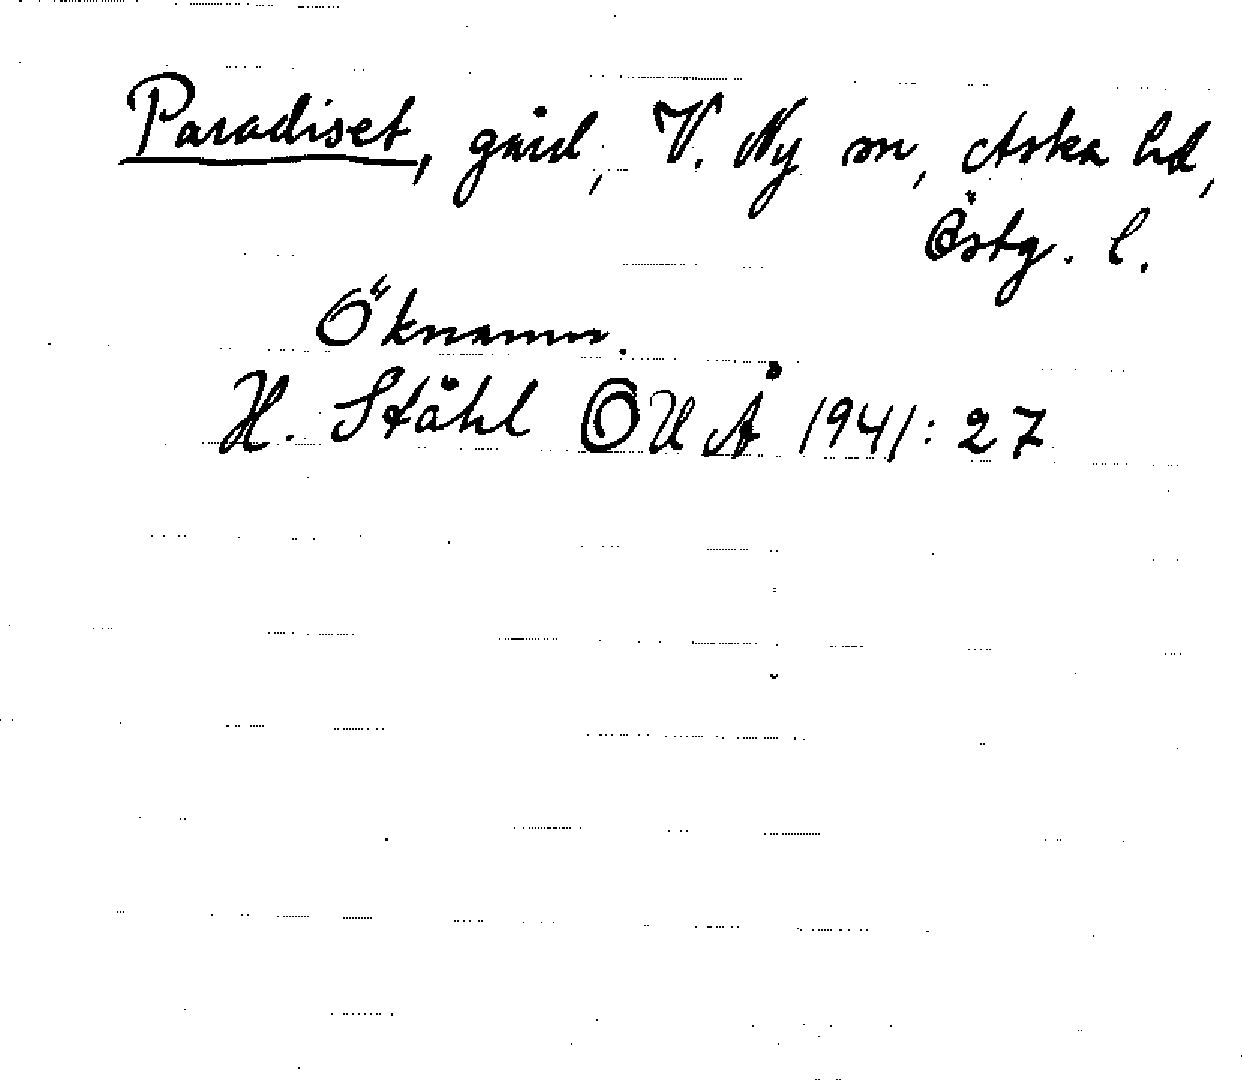 Paradiset, gård, V. Ny sn, Aska hd,
Östg. l.
Öknamn.
H. Ståhl OUÅ 1941:27